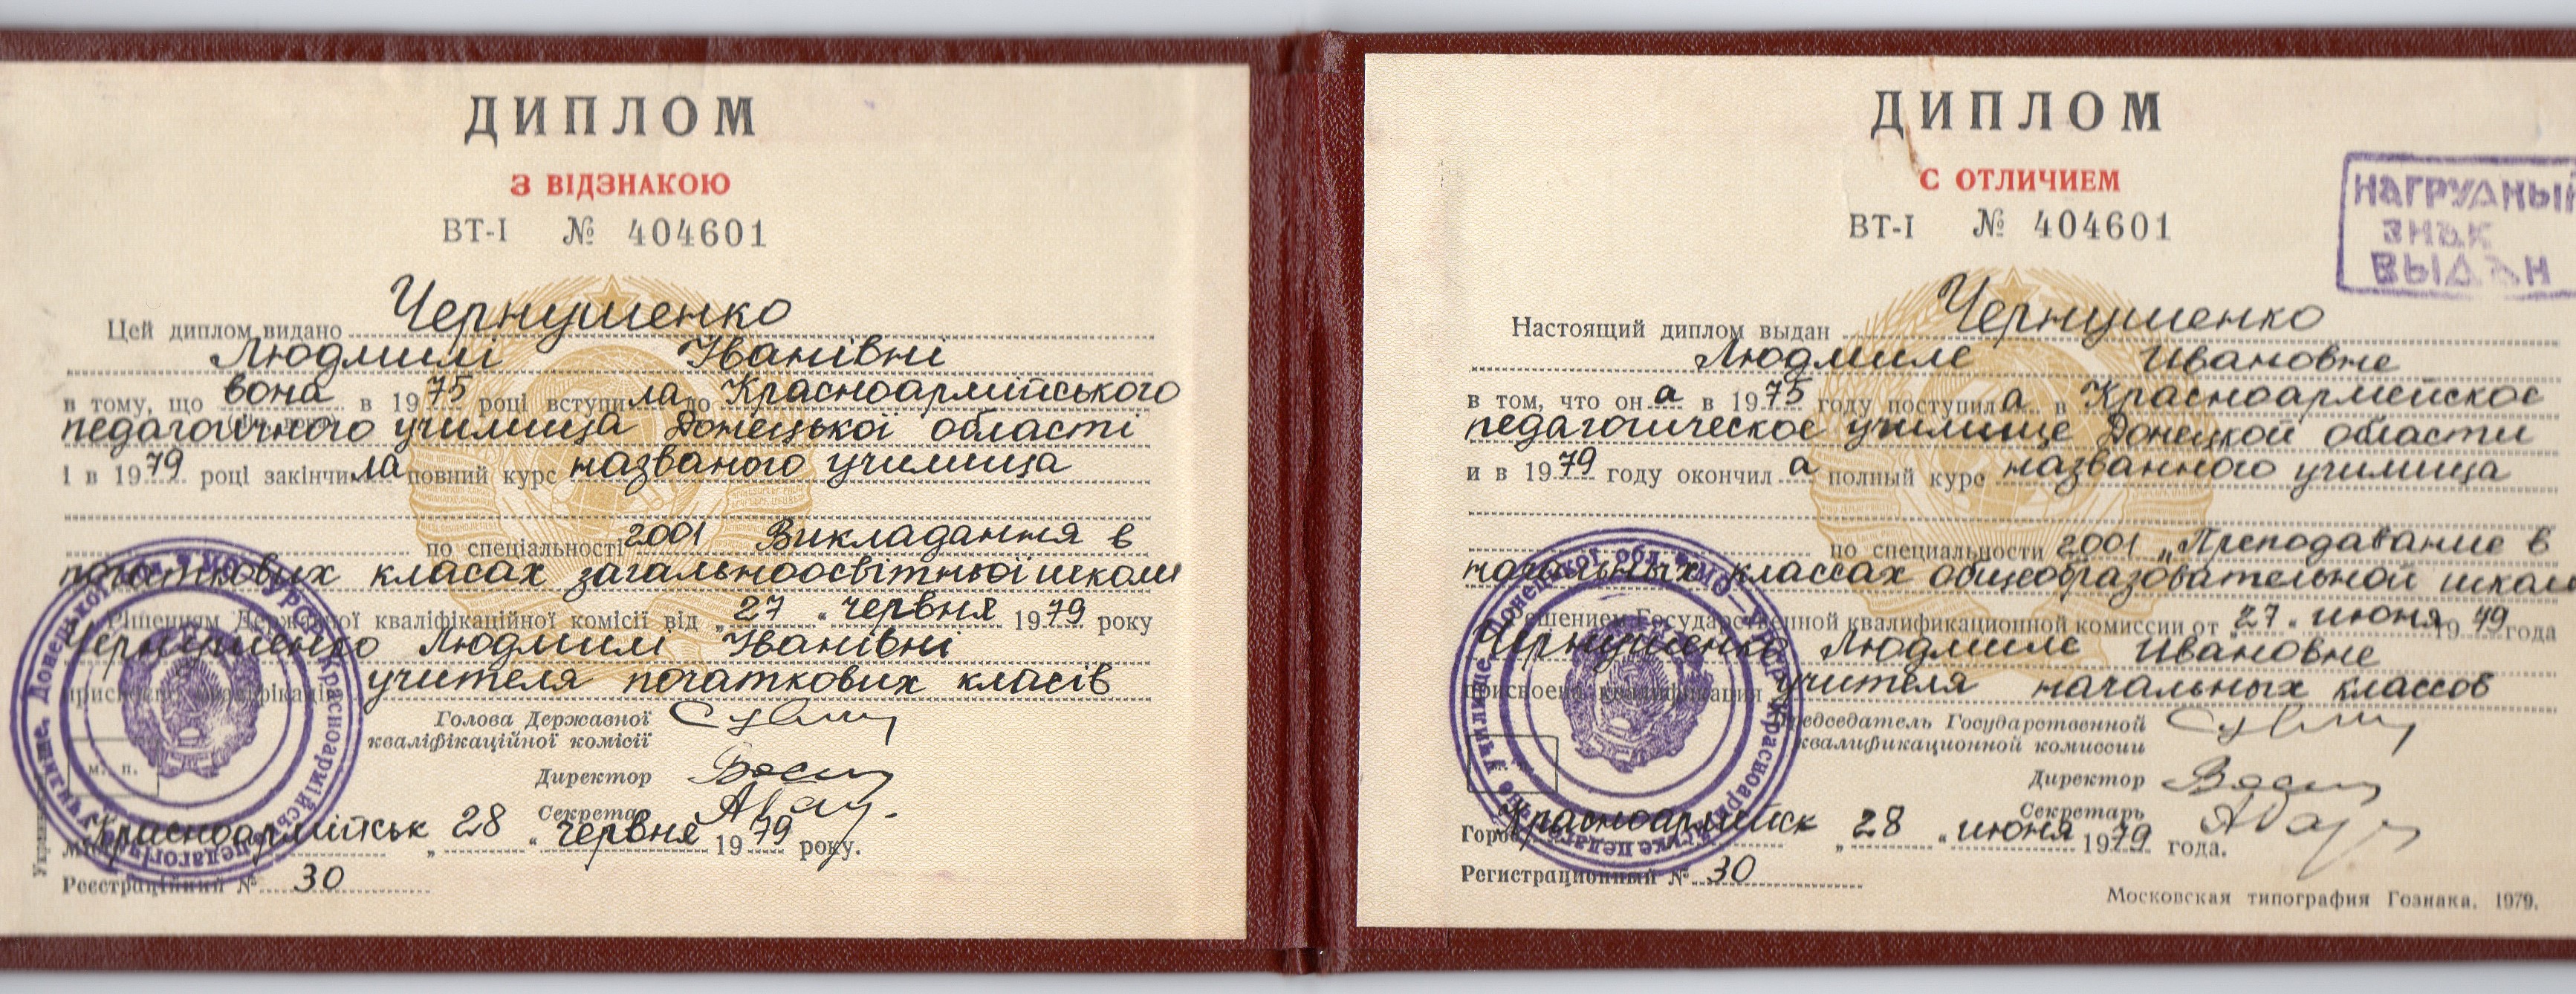 ДИПЛОМ
З ВІДЗНАКОЮ
ВТ-І № 404601
Цей диплом видано Чернушенко
Людмилі Іванівні
в тому, що вона в 1975 році вступила до Красноармійського
педагогічного училища Донецької області
і в 1979 році закінчила повний курс названого училища
по спеціальності 2001 Викладання в
початкових класах загальноосвітньої школи
Рішенням Державної кваліфікаційної комісії від „27" червня 1979 року
Чернушенко Людмилі Іванівні
присвоєна кваліфікація учителя початкових класів
Голова Державної
кваліфікаційної комісії
Директор
Секретар
м. п.
Красноармійськ „28" червня 1979 року.
Реєстраційний № 30
ДИПЛОМ
С ОТЛИЧИЕМ
ВТ-І № 404601
НАГРУДНЫЙ
ЗНАК
ВЫДАН
Настоящий диплом выдан Чернушенко
Людмиле Ивановне
в том, что она в 1975 году поступила в Красноармейское
педагогическое училище Донецкой области
и в 1979 году окончила полный курс названного училища
по специальности 2001 „Преподавание в
начальных классах общеобразовательной школы
Решением Государственной квалификационной комиссии от „27" июня 1979 года
Чернушенко Людмиле Ивановне
присвоена квалификация учителя начальных классов
Председатель Государственной
квалификационной комиссии
Директор
Секретарь
Город Красноармейск „28" июня 1979 года.
Регистрационный № 30
Московская типография Гознака. 1979.